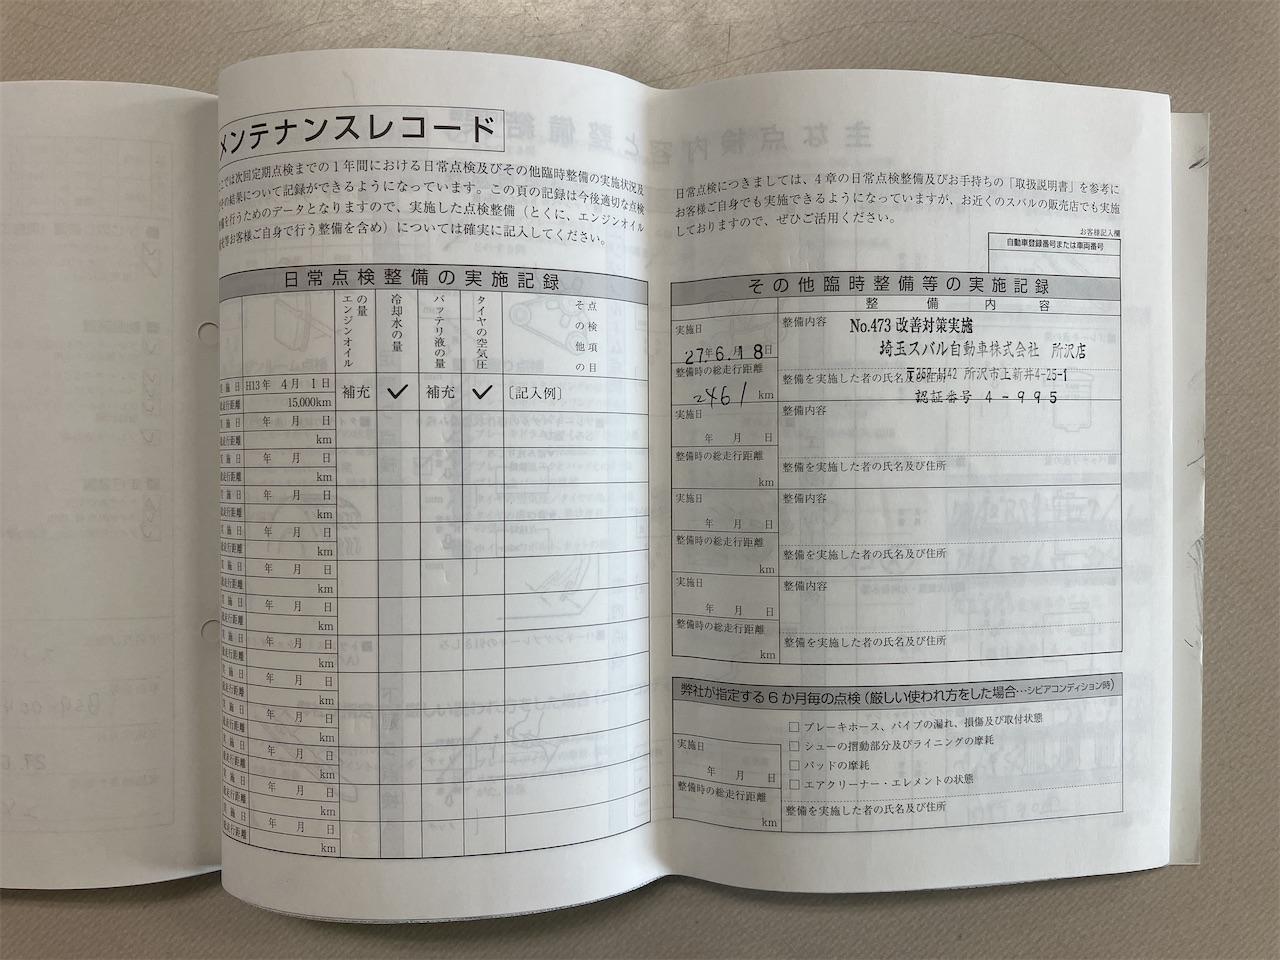 メンテナンスレコード
では次回定期点検までの1年間における日常点検及びその他臨時整備の実施状況及
の結果について記録ができるようになっています。この頁の記録は今後適切な点検
を行うためのデータとなりますので、実施した点検整備（とくに、エンジンオイル
等お客様ご自身で行う整備を含め）については確実に記入してください。
日常点検整備の実施記録
エンジンオイルの量
冷却水の量
バッテリ液の量
タイヤの空気圧
その他の点検項目
実施日 H13年 4月 1日
走行距離 15,000km
補充 ✓ 補充 ✓ 〔記入例〕
実施日 年 月 日
走行距離 km
実施日 年 月 日
走行距離 km
実施日 年 月 日
走行距離 km
実施日 年 月 日
走行距離 km
実施日 年 月 日
走行距離 km
実施日 年 月 日
走行距離 km
実施日 年 月 日
走行距離 km
実施日 年 月 日
走行距離 km
実施日 年 月 日
走行距離 km
実施日 年 月 日
走行距離 km
実施日 年 月 日
走行距離 km
実施日 年 月 日
走行距離 km
日常点検につきましては、4章の日常点検整備及びお手持ちの「取扱説明書」を参考に
お客様ご自身でも実施できるようになっていますが、お近くのスバルの販売店でも実施
しておりますので、ぜひご活用ください。
お客様記入欄
自動車登録番号または車両番号
その他臨時整備等の実施記録
整備内容
実施日
27年6.月18日
整備時の総走行距離
2461 km
整備内容
No.473 改善対策実施
埼玉スバル自動車株式会社 所沢店
整備を実施した者の氏名及び住所
〒357-1142 所沢市上新井4-25-1
認証番号 4-995
実施日
年 月 日
整備時の総走行距離
km
整備内容
整備を実施した者の氏名及び住所
実施日
年 月 日
整備時の総走行距離
km
整備内容
整備を実施した者の氏名及び住所
実施日
年 月 日
整備時の総走行距離
km
整備内容
整備を実施した者の氏名及び住所
弊社が指定する6か月毎の点検（厳しい使われ方をした場合…シビアコンディション時）
□ ブレーキホース、パイプの漏れ、損傷及び取付状態
□ シューの摺動部分及びライニングの摩耗
□ パッドの摩耗
□ エアクリーナー・エレメントの状態
実施日
年 月 日
整備時の総走行距離
km
整備を実施した者の氏名及び住所